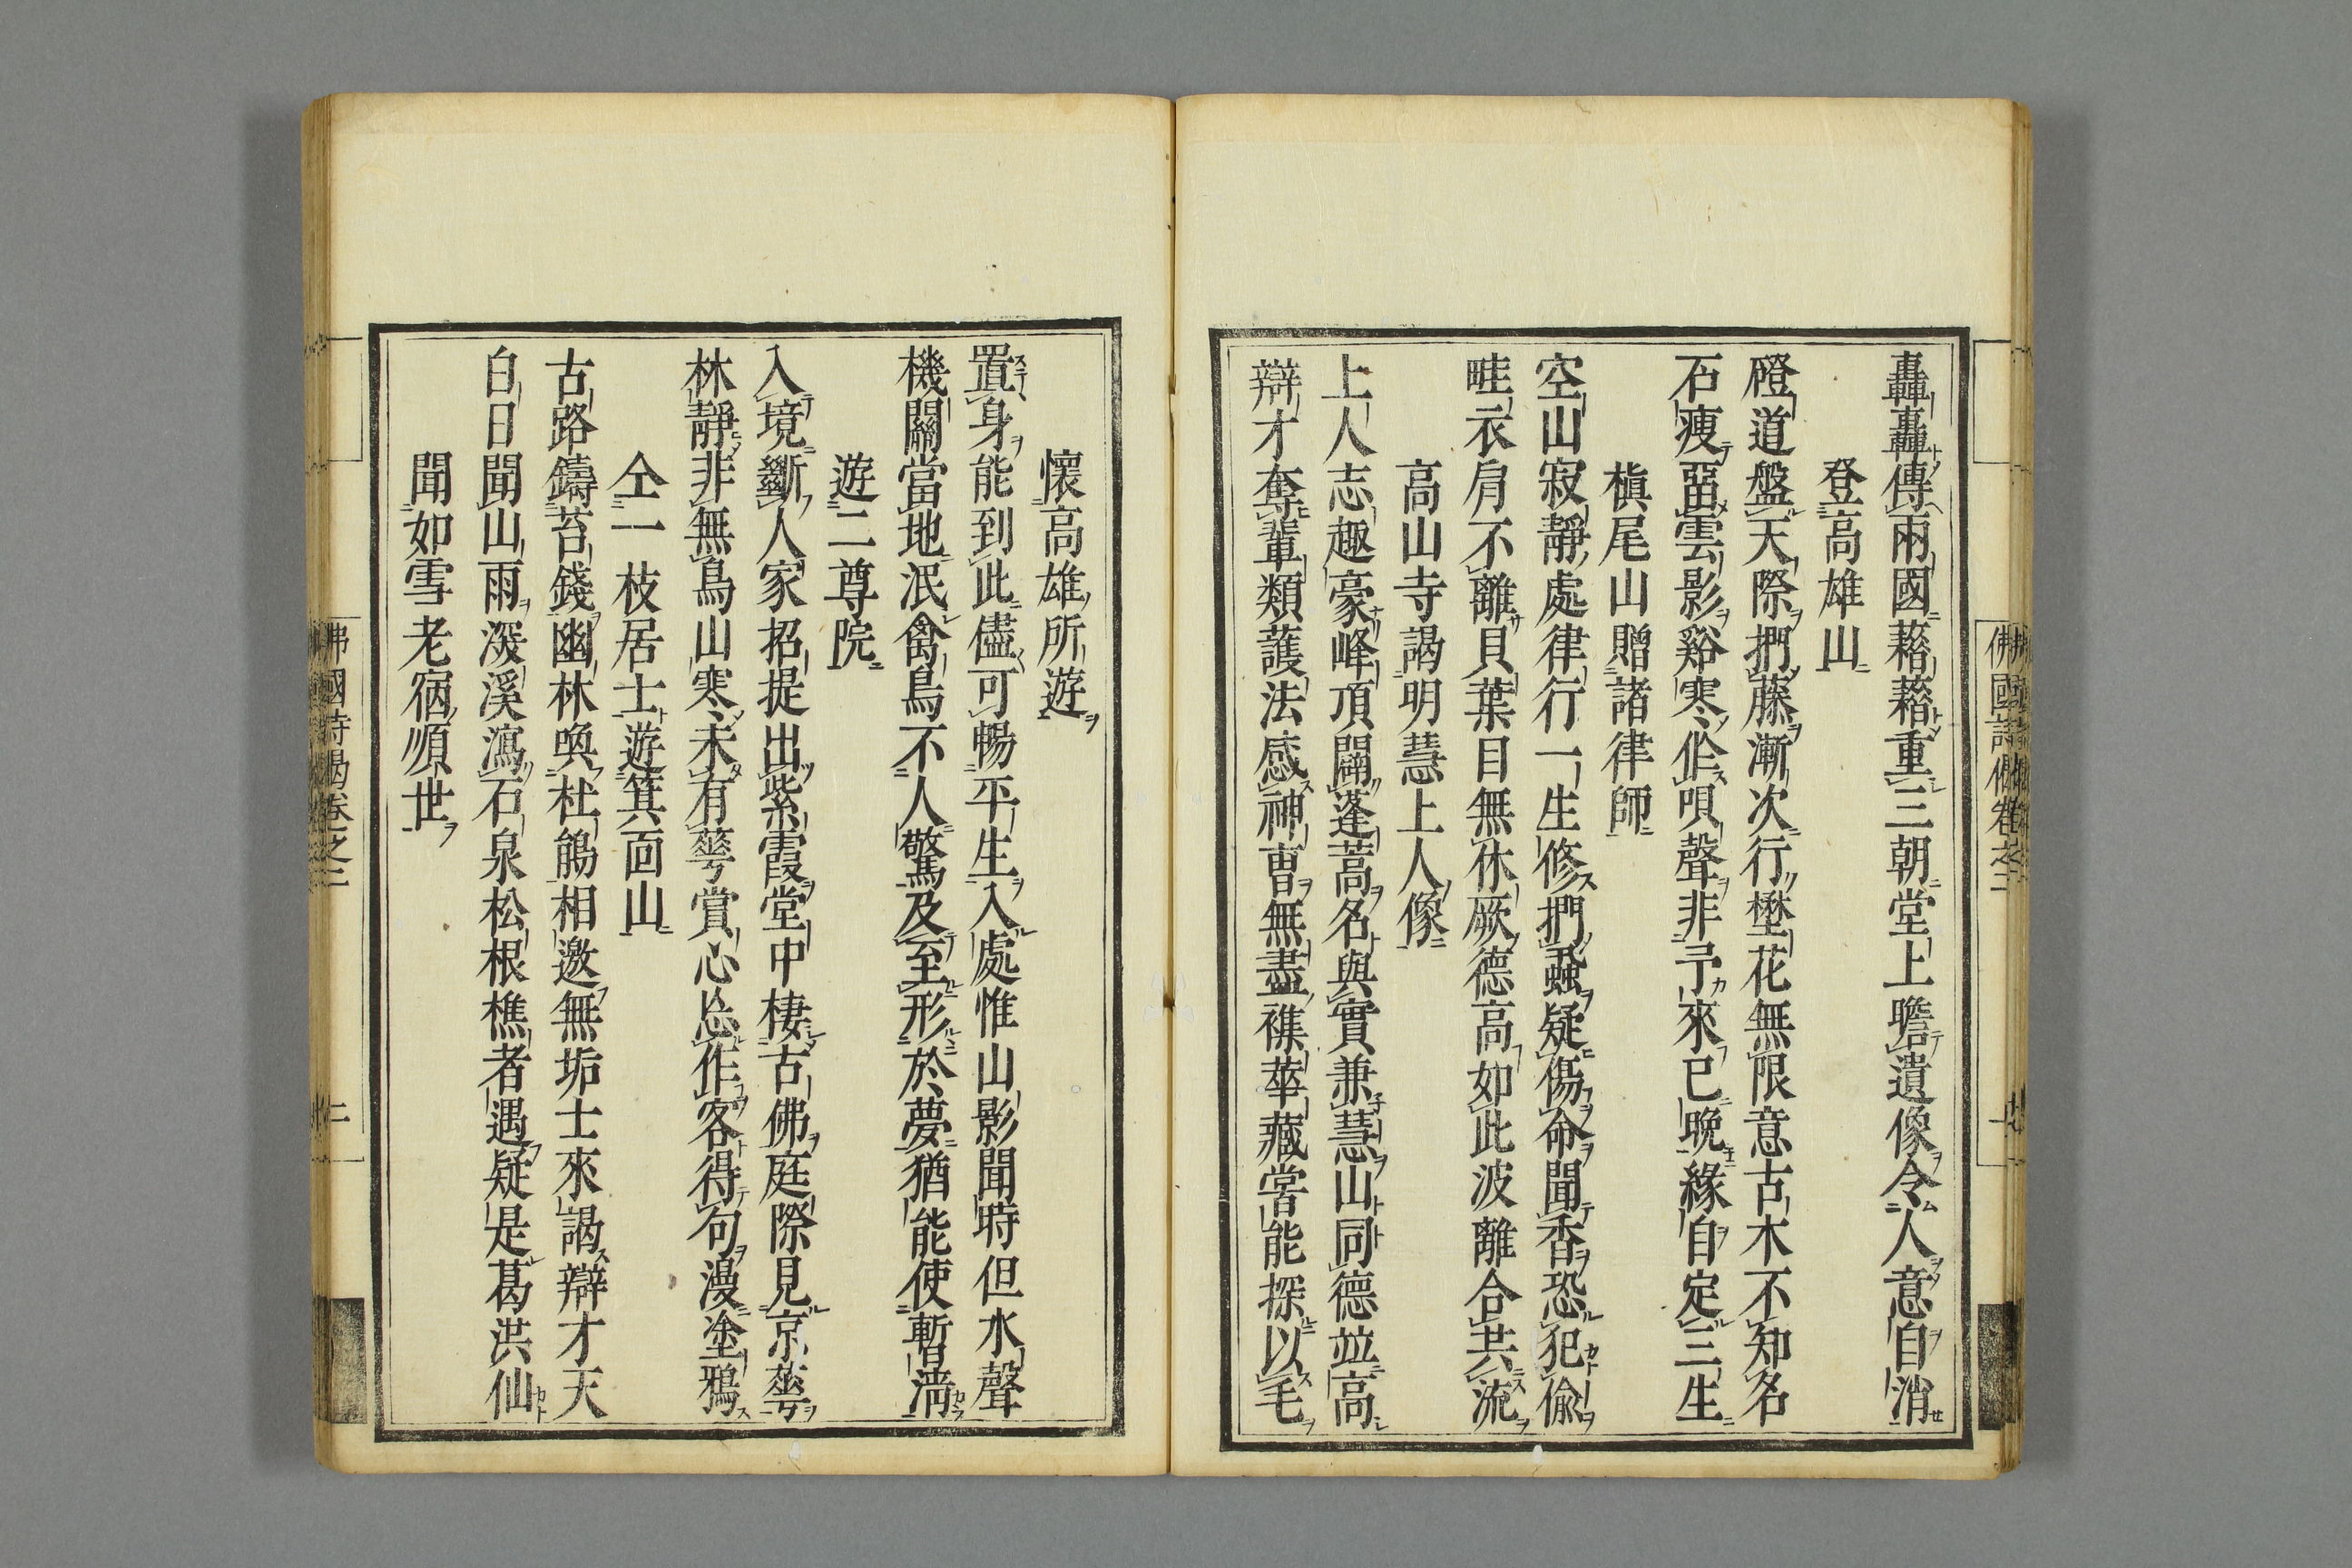 轟轟傳兩國藉藉重三朝堂上瞻遺像令人意自消
登高雄山
磴道盤天際捫藤漸次行埜花無限意古木不知名
石瘦畱雲影谿寒作唄聲非予來已晚緣自定三生
槇尾山贈諸律師
空山寂靜處律行一生修捫蝨疑傷命聞香恐犯偷
畦衣肩不離貝葉目無休厥德高如此波離合共流
高山寺謁明慧上人像
上人志趣豪峰頂闢蓬蒿名與實兼慧山同德竝高
辯才奪輩類護法感神曹無盡襍華藏嘗能探以毛
懷高雄所遊
置身能到此儘可暢平生入處惟山影聞時但水聲
機關當地泯禽鳥不人驚及至形於夢猶能使暫淸
遊二尊院
入境斷人家招提出紫霞堂中棲古佛庭際見京蕐
林靜非無鳥山寒未有蕐賞心怂作客得句漫塗鴉
仝一枝居士遊箕面山
古路鑄苔錢幽林喚杜鵑相邀無垢士來謁辯才天
白日聞山雨深溪瀉石泉松根樵者遇疑是葛洪仙
聞如雪老宿順世
佛國詩偈卷之二